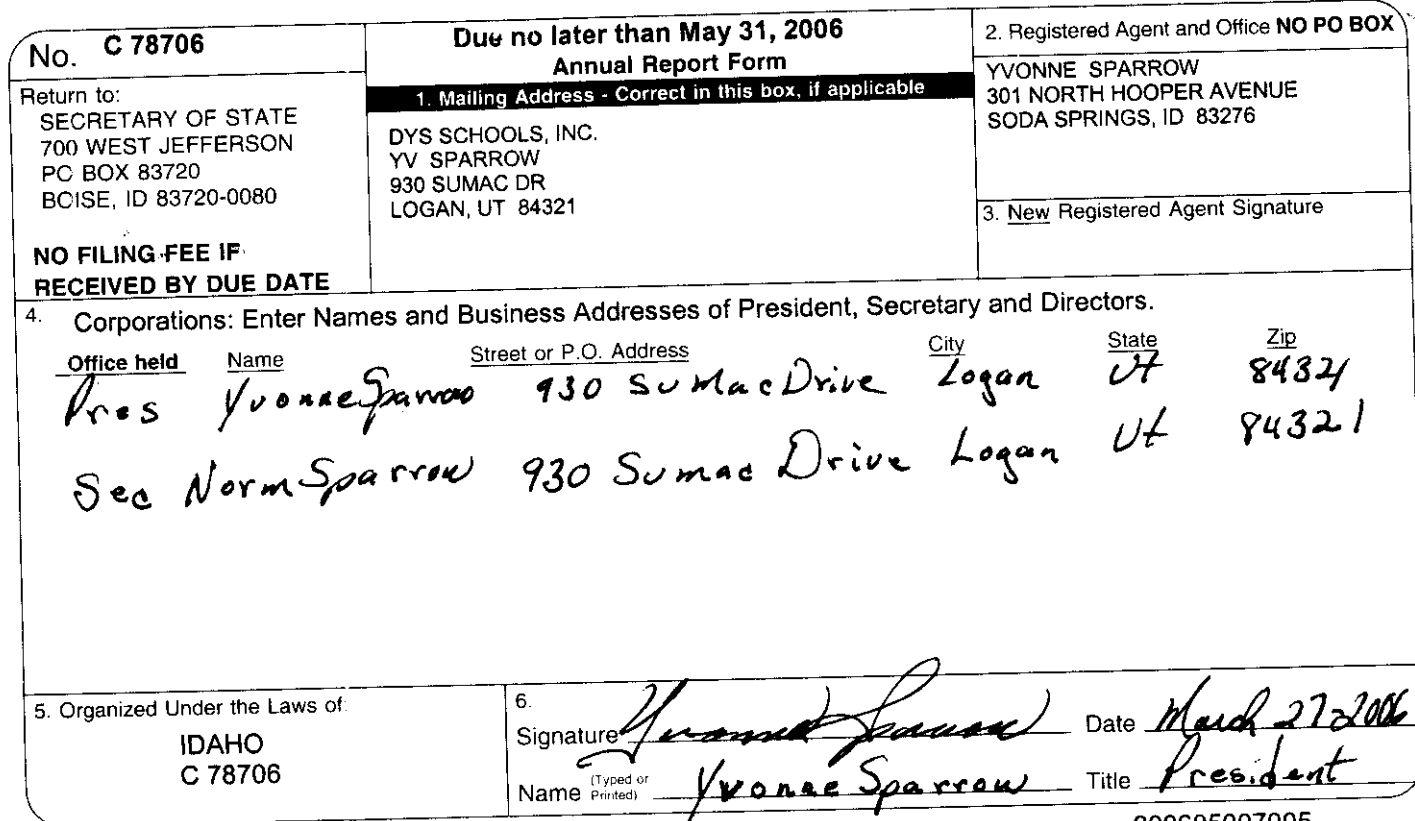 No. C 78706
Return to:
SECRETARY OF STATE
700 WEST JEFFERSON
PO BOX 83720
BOISE, ID 83720-0080
NO FILING FEE IF
RECEIVED BY DUE DATE
Due no later than May 31, 2006
Annual Report Form
1. Mailing Address - Correct in this box, if applicable
DYS SCHOOLS, INC.
YV SPARROW
930 SUMAC DR
LOGAN, UT 84321
2. Registered Agent and Office NO PO BOX
YVONNE SPARROW
301 NORTH HOOPER AVENUE
SODA SPRINGS, ID 83276
3. New Registered Agent Signature
4. Corporations: Enter Names and Business Addresses of President, Secretary and Directors.
Office held Name Street or P.O. Address City State Zip
Pres Yvonne Sparrow 930 Sumac Drive Logan Ut 84321
Sec Norm Sparrow 930 Sumac Drive Logan Ut 84321
5. Organized Under the Laws of:
IDAHO
C 78706
6.
Signature Yvonne Sparrow Date March 27 2006
Name (Typed or Printed) Yvonne Sparrow Title President